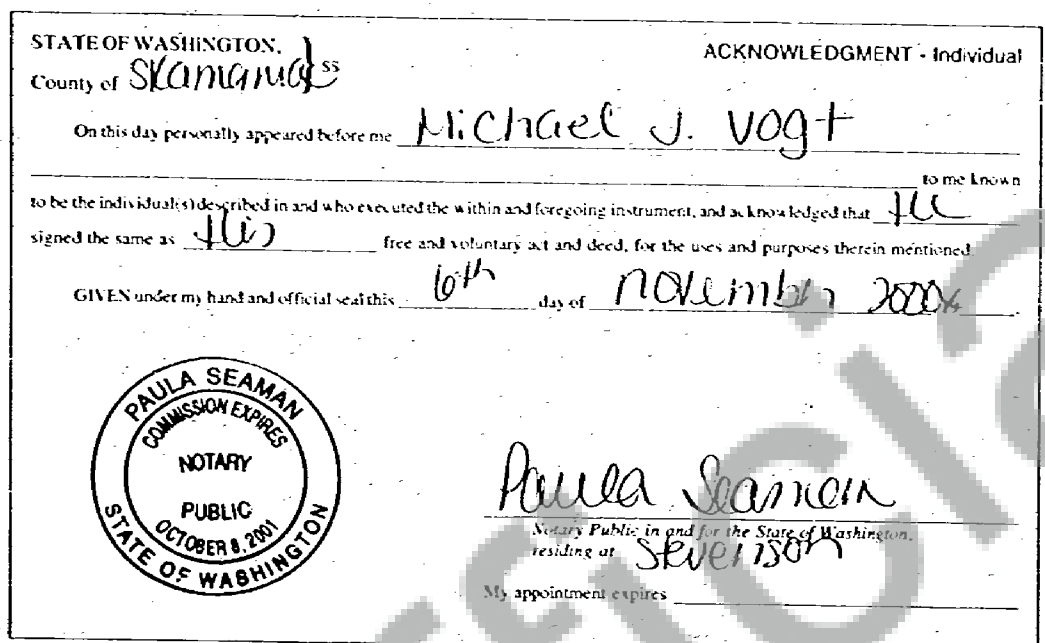 STATE OF WASHINGTON,
ACKNOWLEDGMENT - Individual
County of Skamania ss
On this day personally appeared before me Michael J. Vogt
to me known
to be the individual(s) described in and who executed the within and foregoing instrument, and acknowledged that He
signed the same as His free and voluntary act and deed, for the uses and purposes therein mentioned.
GIVEN under my hand and official seal this 6th day of November 2000
PAULA SEAMAN
COMMISSION EXPIRES
NOTARY
PUBLIC
OCTOBER 8, 2001
STATE OF WASHINGTON
Paula Seaman
Notary Public in and for the State of Washington,
residing at Stevenson
My appointment expires